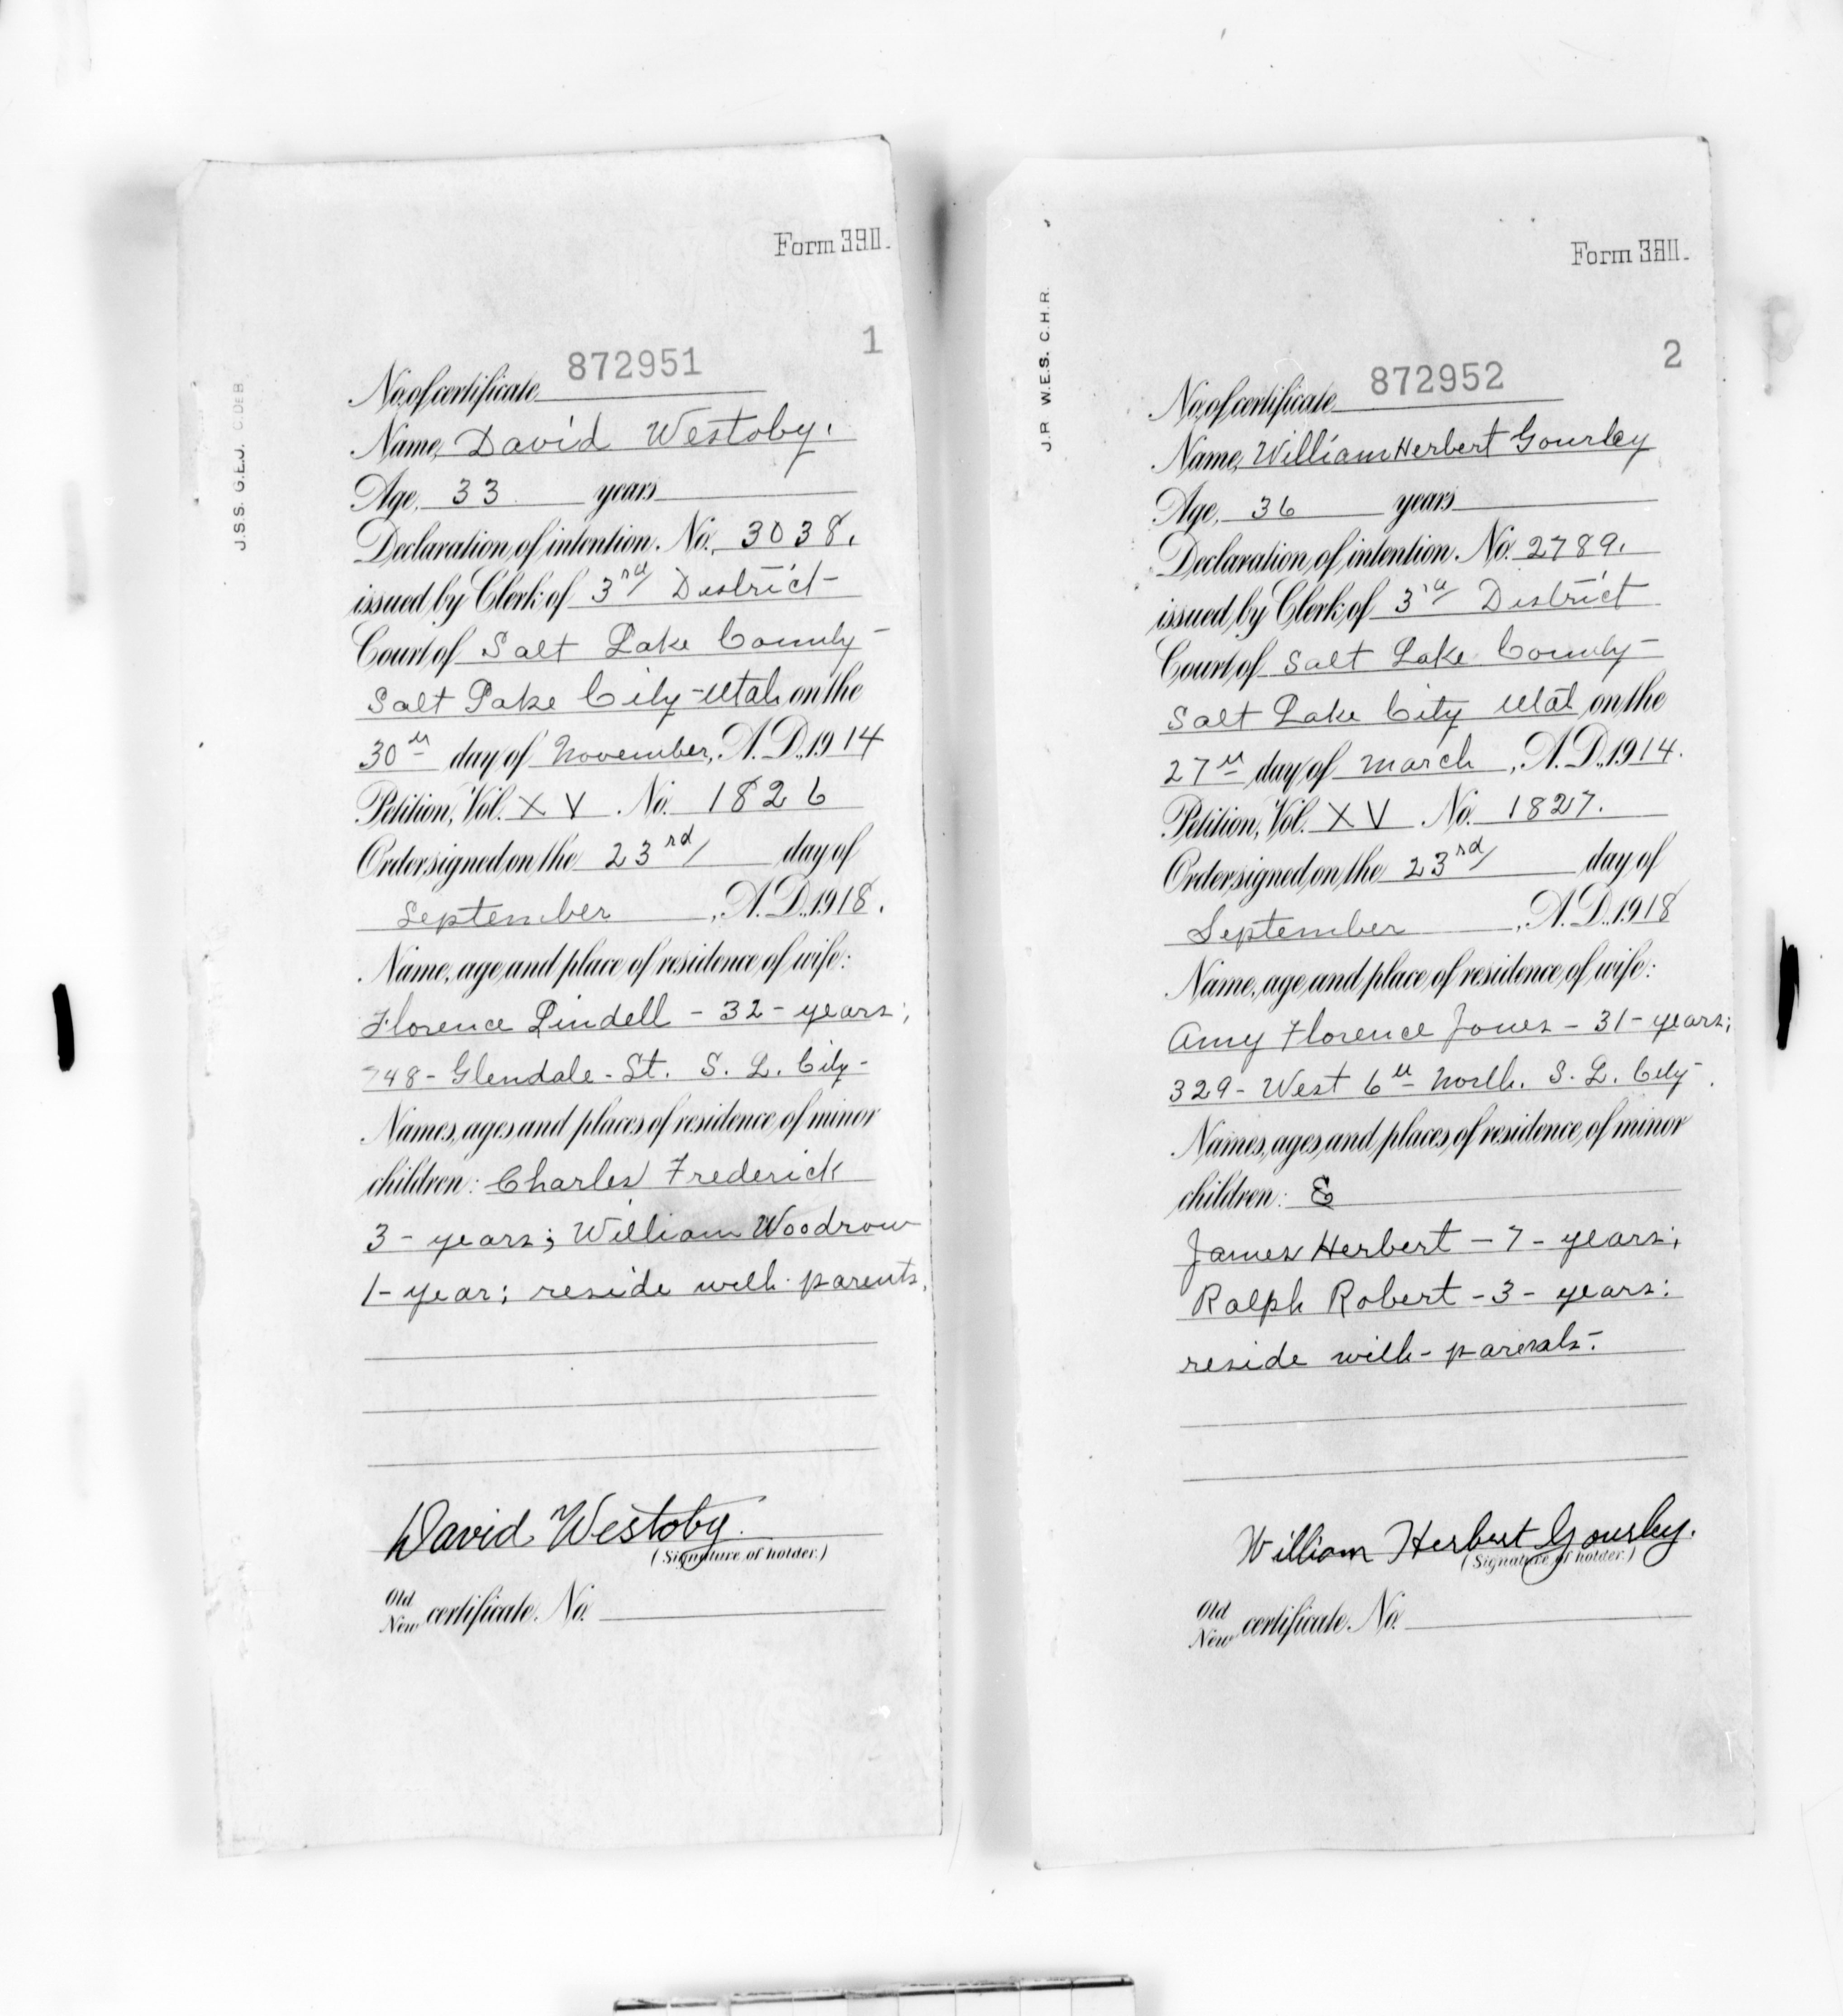 Form 3911.
1
J.S.S. G.E.J. C.DEB
No. of certificate 872951
Name, David Westoby.
Age, 33 years
Declaration of intention. No. 3038.
issued by Clerk of 3rd District
Court of Salt Lake County
Salt Lake City Utah on the
30th day of November, A.D. 1914
Petition, Vol. XV No. 1826
Order signed on the 23rd day of
September, A.D. 1918.
Name, age and place of residence of wife:
Florence Lindell - 32 - years;
748 - Glendale - St. S. L. City -
Names, ages and places of residence of minor
children: Charles Frederick
3 - years; William Woodrow
1 - year; reside with parents.
David Westoby.
(Signature of holder.)
Old
New certificate No.
Form 3911.
2
J.R. W.E.S. C.H.R.
No. of certificate 872952
Name, William Herbert Gourley
Age, 36 years
Declaration of intention. No. 2789.
issued by Clerk of 3rd District
Court of Salt Lake County -
Salt Lake City Utah on the
27th day of March, A.D. 1914.
Petition, Vol. XV No. 1827.
Order signed on the 23rd day of
September, A.D. 1918
Name, age and place of residence of wife:
Amy Florence Jones - 31 - years;
329 - West 6th North. S. L. City -
Names, ages and places of residence of minor
children:
James Herbert - 7 - years;
Ralph Robert - 3 - years:
reside with - parents.
William Herbert Gourley.
(Signature of holder.)
Old
New certificate No.